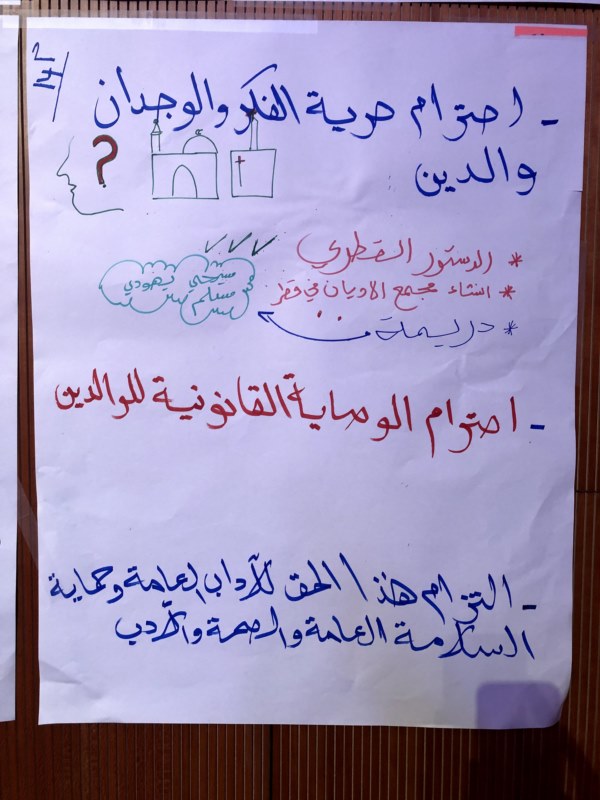 م١٤
- احترام حرية الفكر والوجدان
والدين
?
* الدستور القطري
* انشاء مجمع الاديان في قطر
* دريمة
مسيحي يهودي
مسلم
- احترام الوصاية القانونية للوالدين
- التزام هذا الحق للآداب العامة وحماية
السلامة العامة والصحة والآدب